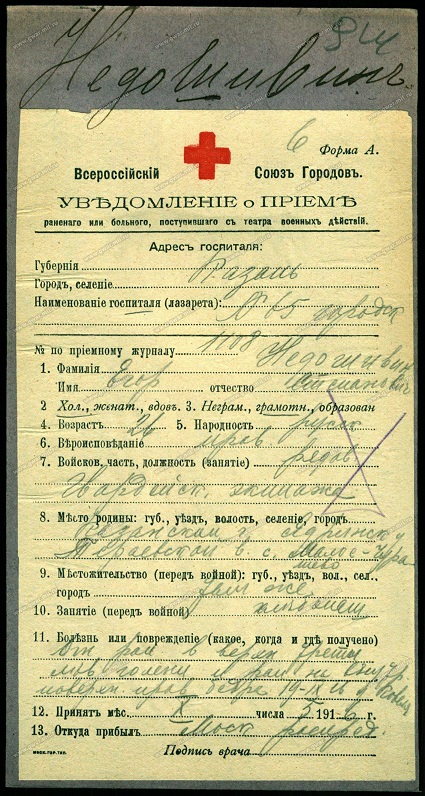 Недошивинъ
6 Форма А.
Всероссійскій Союзъ Городовъ.
УВѢДОМЛЕНІЕ о ПРІЕМѢ
раненаго или больного, поступившаго съ театра военныхъ дѣйствій.
Адресъ госпиталя:
Губернія
Городъ, селеніе Казань
Наименованіе госпиталя (лазарета): № 65 городск
№ по пріемному журналу 1108
1. Фамилія Недошивин
Имя Егор отчество Степанович
2 Хол., женат., вдовъ. 3. Неграм., грамотн., образован
4. Возрастъ 26 5. Народность русск
6. Вѣроисповѣданіе прав
7. Войсков. часть, должность (занятіе) рядов
Гвардейск. экипажа
8. Мѣсто родины: губ., уѣздъ, волость, селеніе, городъ
Казанской г. Ядринск у
в. с. Малое-Чура
шево
9. Мѣстожительство (передъ войной): губ., уѣздъ, вол., сел.,
городъ там же
10. Занятіе (передъ войной) хлѣбопаш
11. Болѣзнь или поврежденіе (какое, когда и гдѣ получено)
в верхн трети
голени и
прав бедре 19-IX 16
12. Принятъ мѣс. X числа 5 1916 г.
13. Откуда прибылъ Моск распред.
Подпись врача
МОСК. ГОР. ТИП.